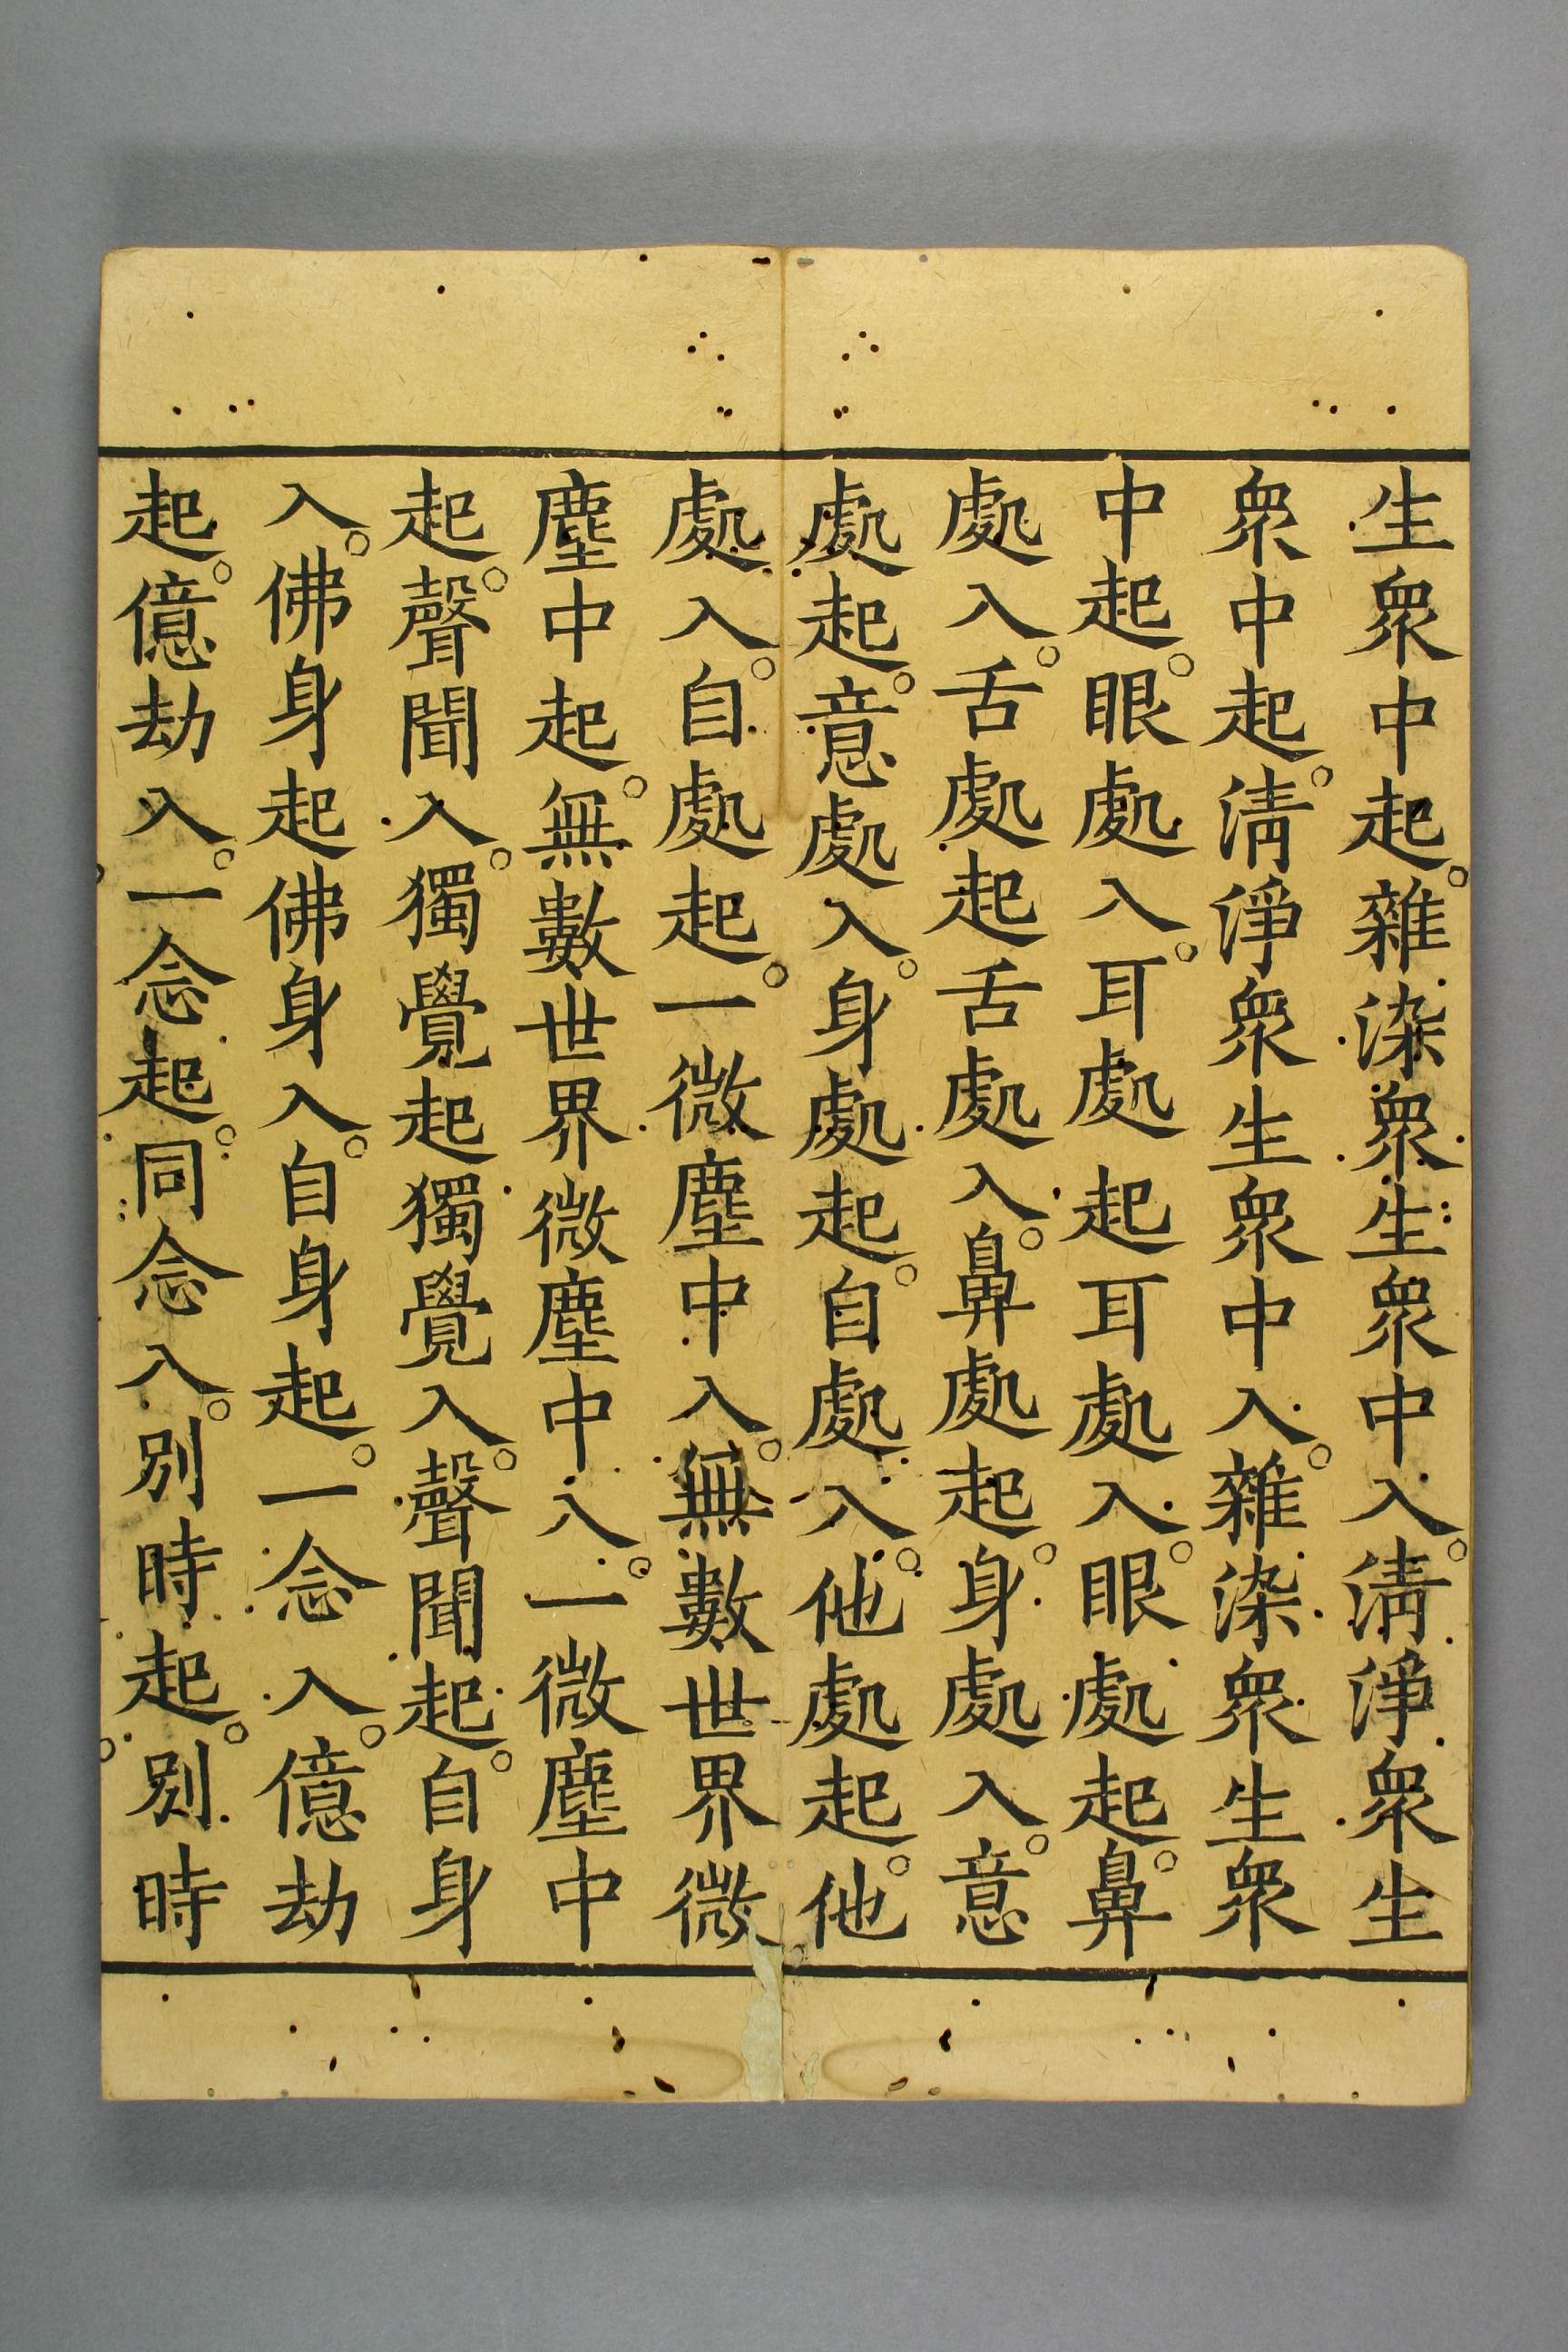 生衆中起。雜染衆生衆中入。淸淨衆生
衆中起。淸淨衆生衆中入。雜染衆生衆
中起。眼處入。耳處起耳處入。眼處起。鼻
處入。舌處起舌處入。鼻處起。身處入。意
處起。意處入。身處起。自處入。他處起。他
處入。自處起。一微塵中入。無數世界微
塵中起。無數世界微塵中入。一微塵中
起。聲聞入。獨覺起獨覺入。聲聞起。自身
入。佛身起佛身入。自身起。一念入。億劫
起。億劫入。一念起。同念入。別時起。別時